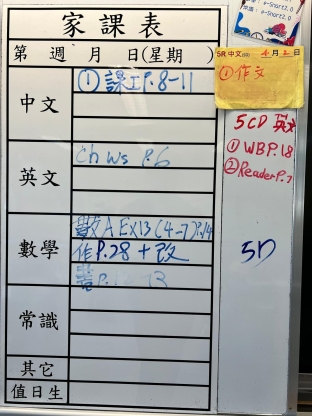 家課表
第 週 月 日(星期 )
中文
① 課工P.8-11
英文
Ch WS P.6
數學
數A EX13 (4-7)P.14
作P.28+改
P.
常識
其它
值日生
5R 中文 4月2日
①作文
5CD 英文
① WBP.18
② ReaderP.7
5D